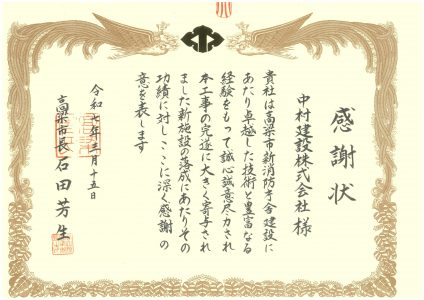 感謝状
中村建設株式会社 様
貴社は高梁市新消防庁舎建設に
あたり卓越した技術と豊富なる
経験をもって誠心誠意尽力され
本工事の完遂に大きく寄与され
ました新施設の落成にあたりその
功績に対しここに深く感謝の
意を表します
令和七年三月十五日
高梁市長 石田芳生